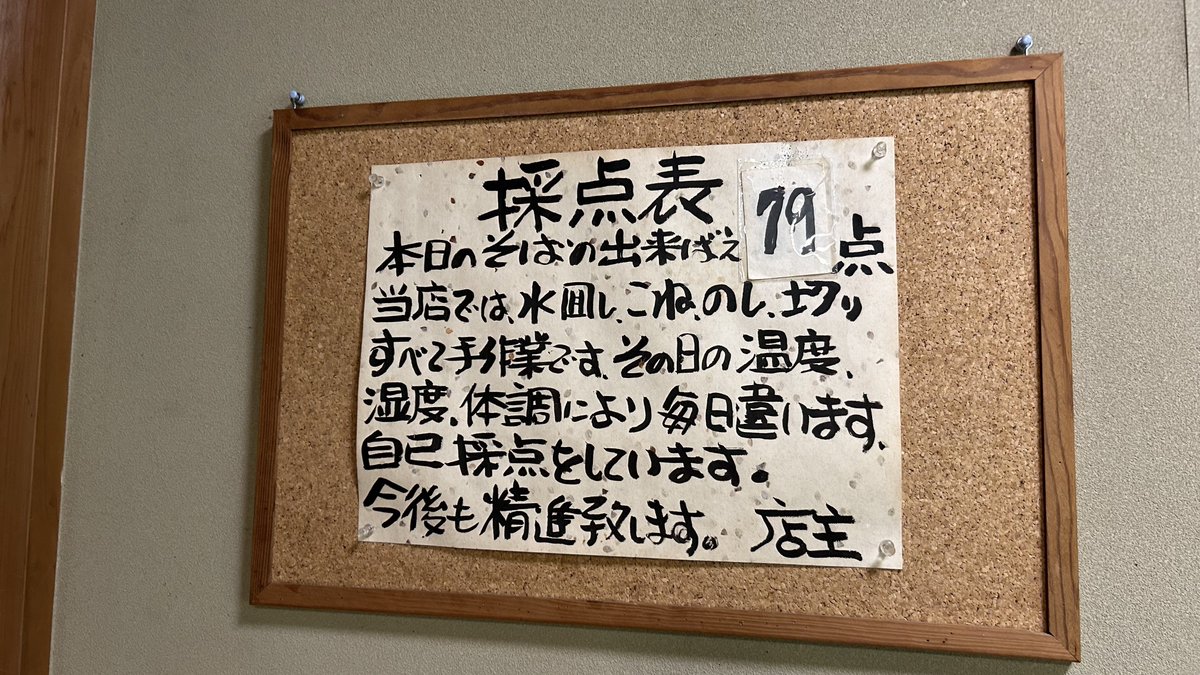 採点表
本日のそばの出来ばえ 79点
当店では、水回し、こね、のし、切り
すべて手作業です、その日の温度、
湿度、体調により毎日違います、
自己採点をしています。
今後も精進致します。 店主